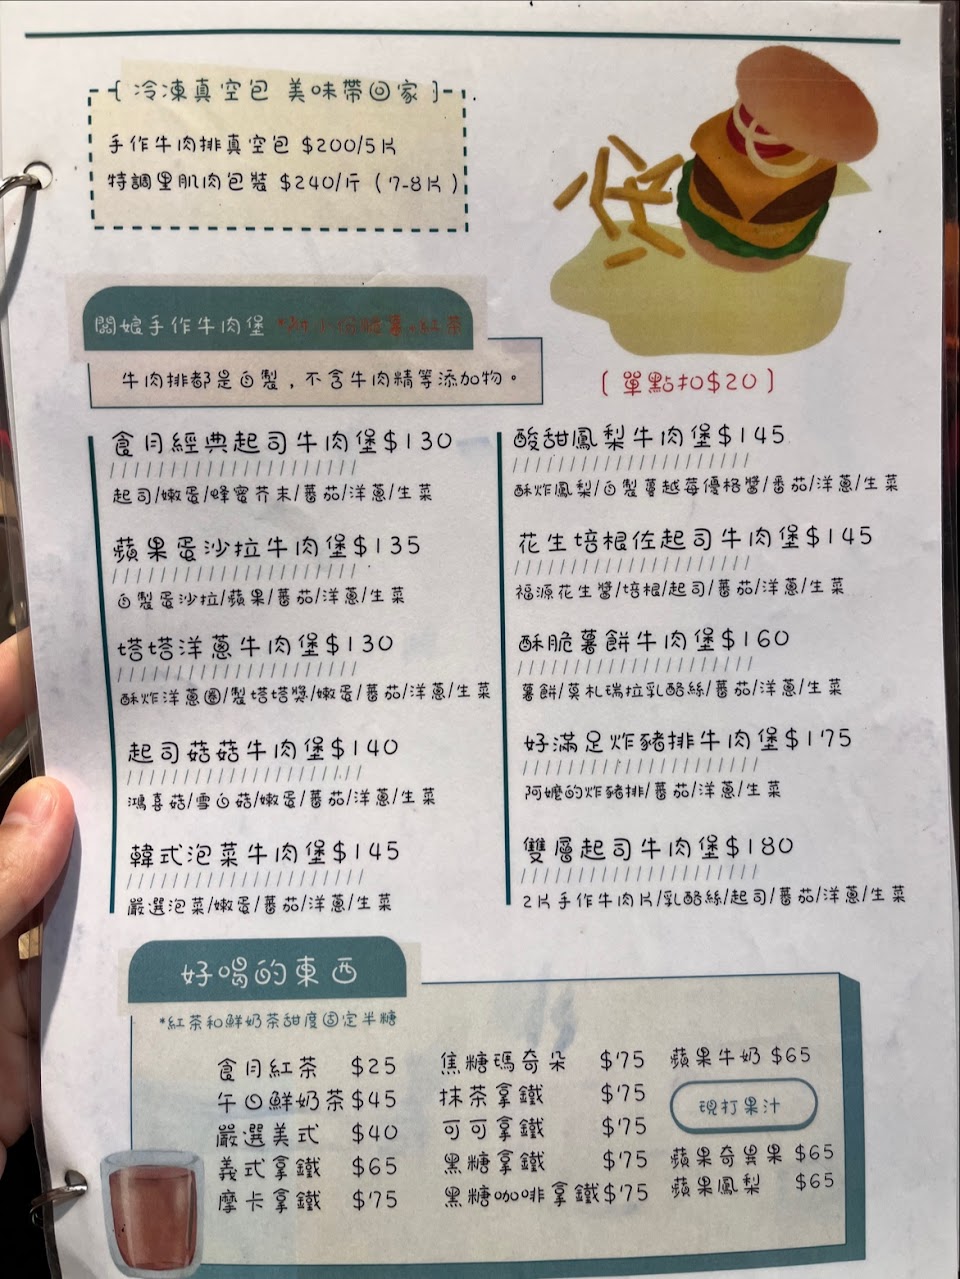 冷凍真空包 美味帶回家
手作牛肉排真空包 $200/5片
特調里肌肉包裝 $240/斤（7-8片）
闆娘手作牛肉堡 *附小份脆薯+紅茶
牛肉排都是自製，不含牛肉精等添加物。
〔單點扣$20〕
食月經典起司牛肉堡$130
起司/嫩蛋/蜂蜜芥末/蕃茄/洋蔥/生菜
蘋果蛋沙拉牛肉堡$135
自製蛋沙拉/蘋果/蕃茄/洋蔥/生菜
塔塔洋蔥牛肉堡$130
酥炸洋蔥圈/製塔塔獎/嫩蛋/蕃茄/洋蔥/生菜
起司菇菇牛肉堡$140
鴻喜菇/雪白菇/嫩蛋/蕃茄/洋蔥/生菜
韓式泡菜牛肉堡$145
嚴選泡菜/嫩蛋/蕃茄/洋蔥/生菜
酸甜鳳梨牛肉堡$145
酥炸鳳梨/自製蔓越莓優格醬/番茄/洋蔥/生菜
花生培根佐起司牛肉堡$145
福源花生醬/培根/起司/蕃茄/洋蔥/生菜
酥脆薯餅牛肉堡$160
薯餅/莫札瑞拉乳酪絲/蕃茄/洋蔥/生菜
好滿足炸豬排牛肉堡$175
阿嬤的炸豬排/蕃茄/洋蔥/生菜
雙層起司牛肉堡$180
2片手作牛肉片/乳酪絲/起司/蕃茄/洋蔥/生菜
好喝的東西
*紅茶和鮮奶茶甜度固定半糖
食月紅茶 $25
午日鮮奶茶$45
嚴選美式 $40
義式拿鐵 $65
摩卡拿鐵 $75
焦糖瑪奇朵 $75
抹茶拿鐵 $75
可可拿鐵 $75
黑糖拿鐵 $75
黑糖咖啡拿鐵$75
蘋果牛奶 $65
現打果汁
蘋果奇異果 $65
蘋果鳳梨 $65